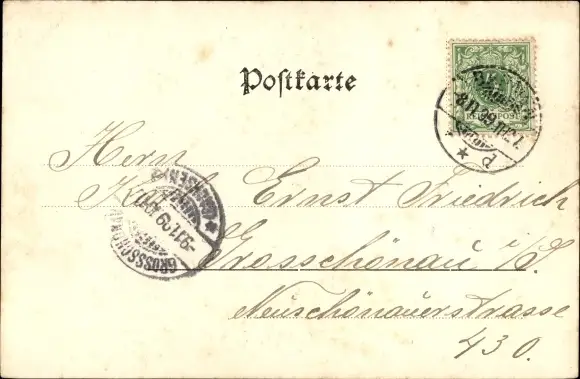 Postkarte
REICHSPOST
8.11.99
Herrn
Karl Ernst Friedrich
Grosschönau i/S.
Neuschönauerstrasse
430.
GROSSSCHÖNAU
9.11.99
(SACHSEN)